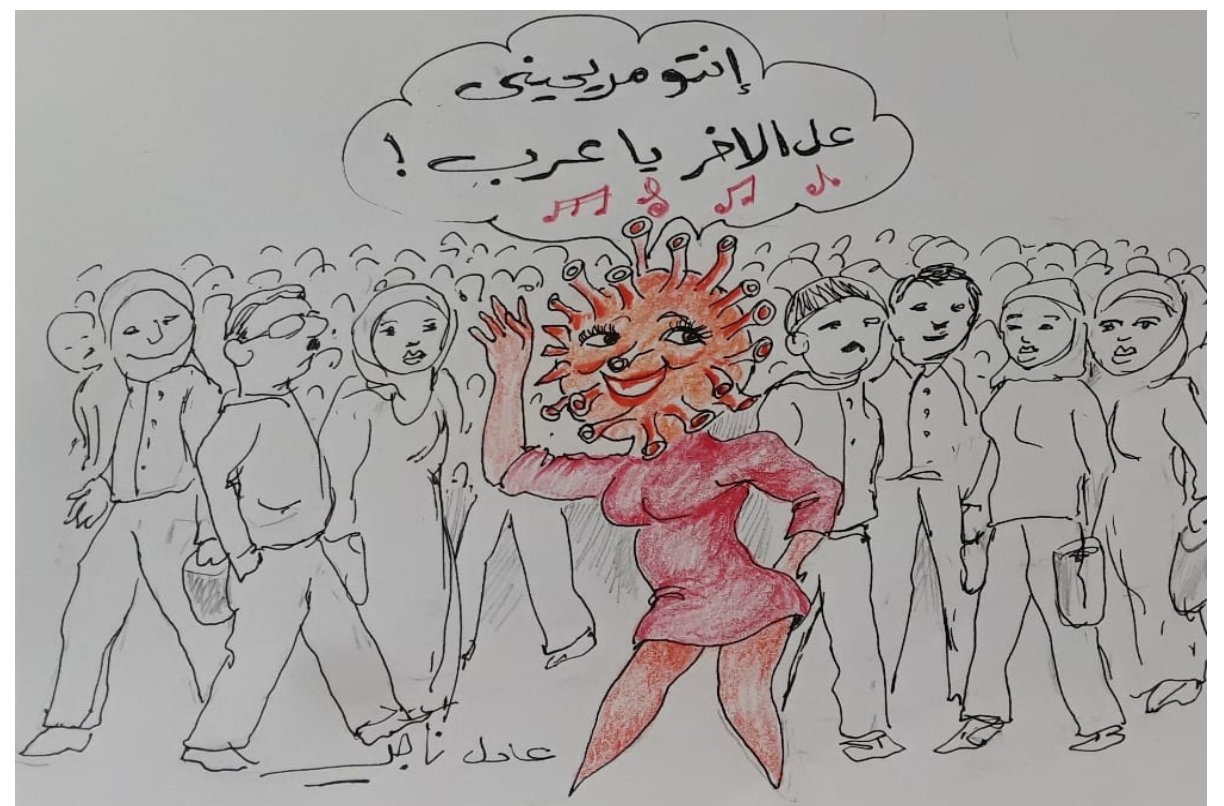 إنتو مريحيني
عل الاخر يا عرب !
عادل ناجد